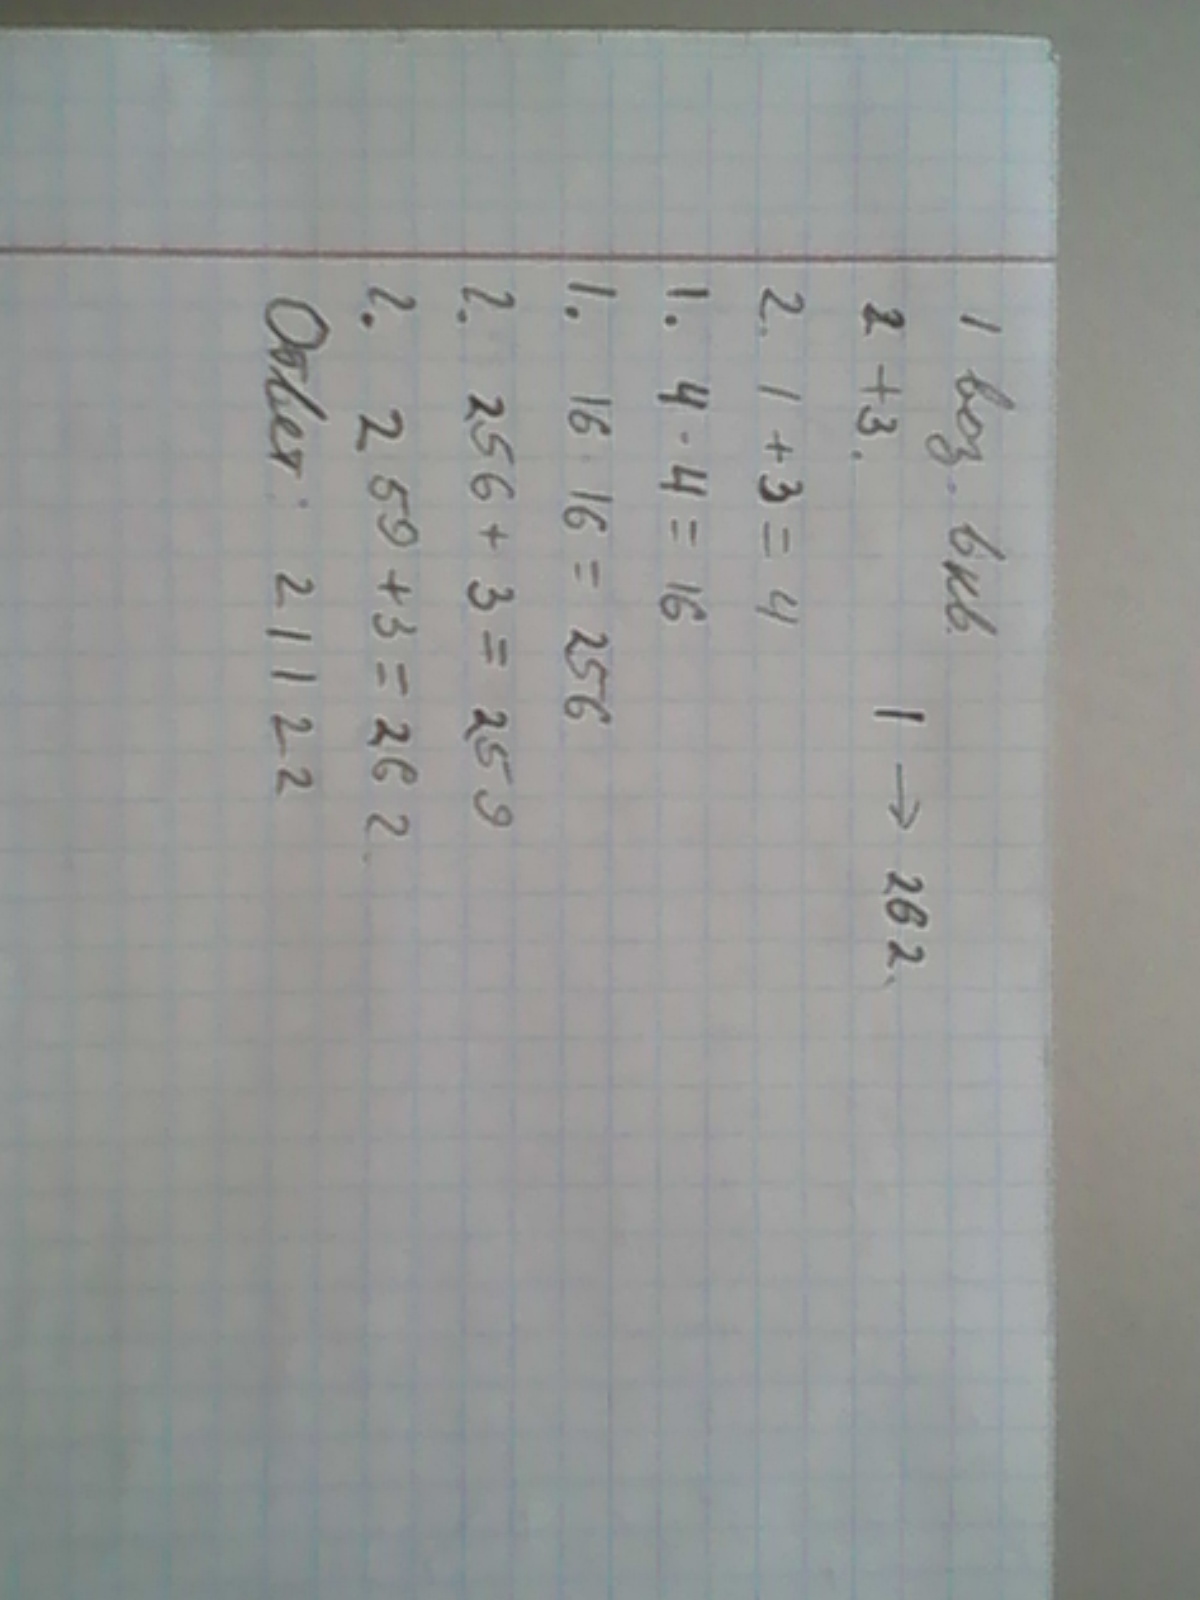 1 воз. в кв.
2 +3. 1 → 262.
2. 1 + 3 = 4
1. 4 · 4 = 16
1. 16 · 16 = 256
2. 256 + 3 = 259
2. 259 + 3 = 262.
Ответ: 21122